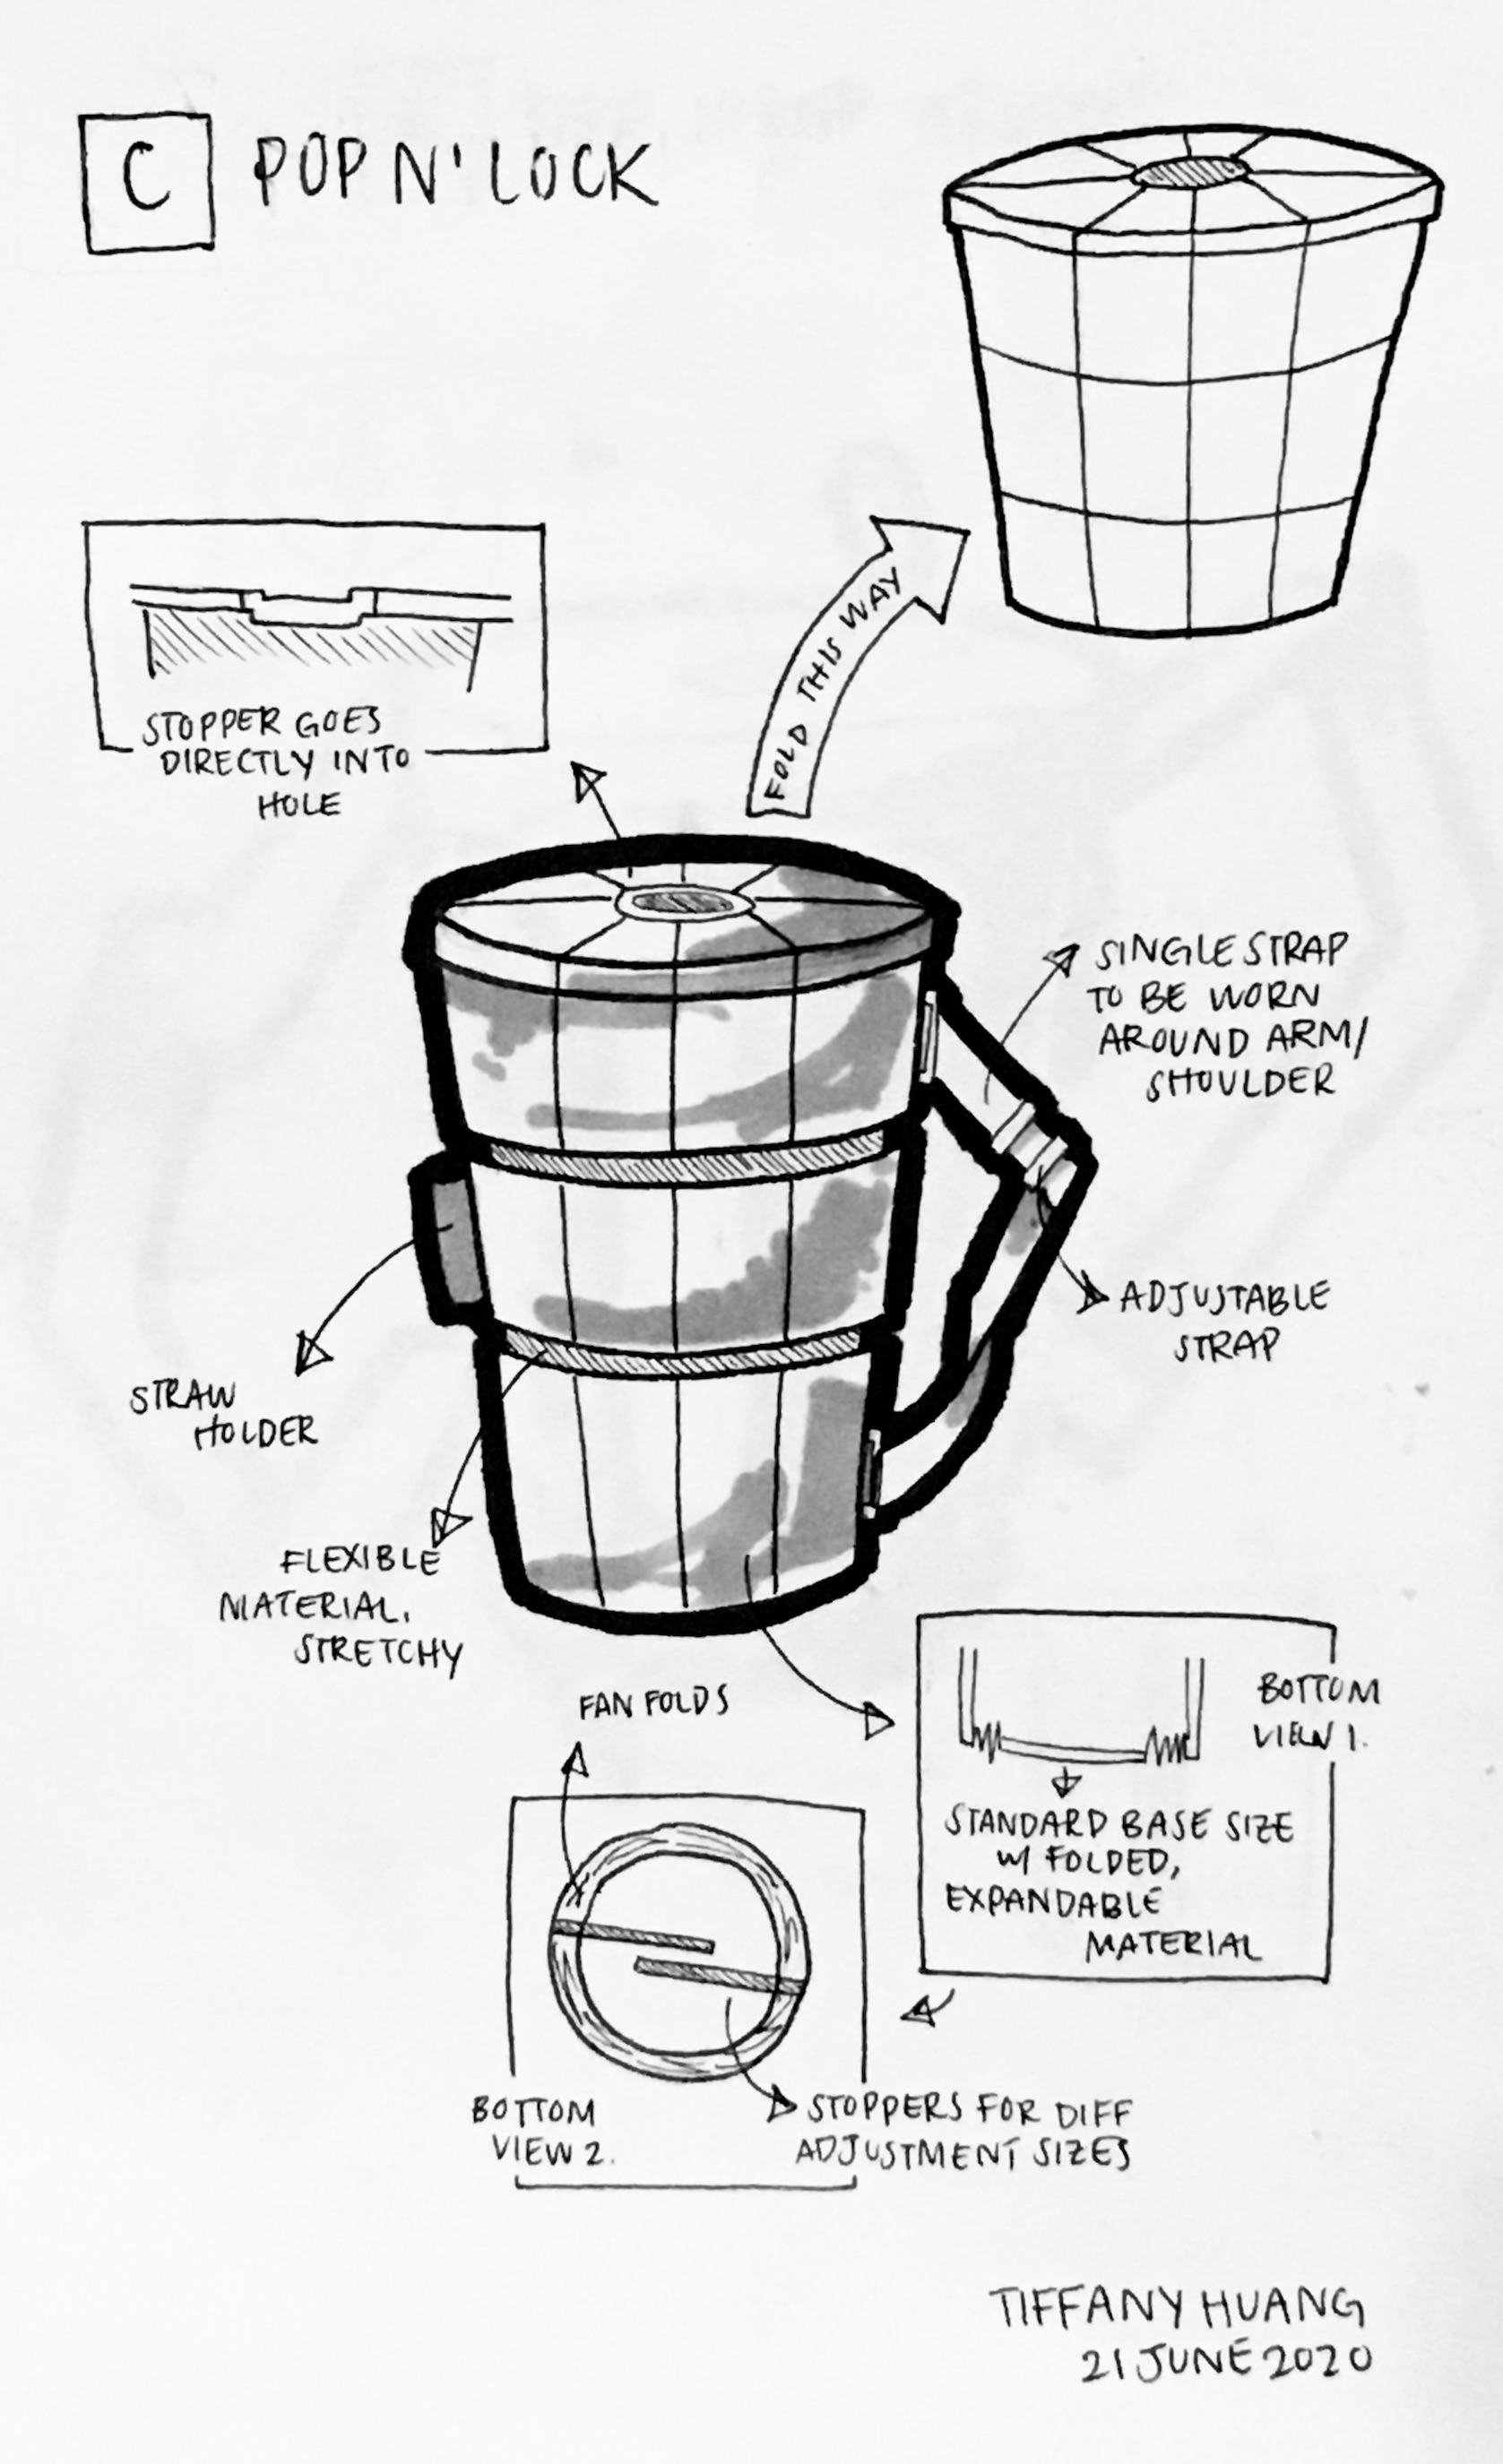 C POP N' LOCK
STOPPER GOES
DIRECTLY INTO
HOLE
FOLD THIS WAY
SINGLE STRAP
TO BE WORN
AROUND ARM/
SHOULDER
ADJUSTABLE
STRAP
STRAW
HOLDER
FLEXIBLE
MATERIAL.
STRETCHY
FAN FOLDS
BOTTOM
VIEW 1.
STANDARD BASE SIZE
W/ FOLDED,
EXPANDABLE
MATERIAL
BOTTOM
VIEW 2.
STOPPERS FOR DIFF
ADJUSTMENT SIZES
TIFFANY HUANG
21 JUNE 2020